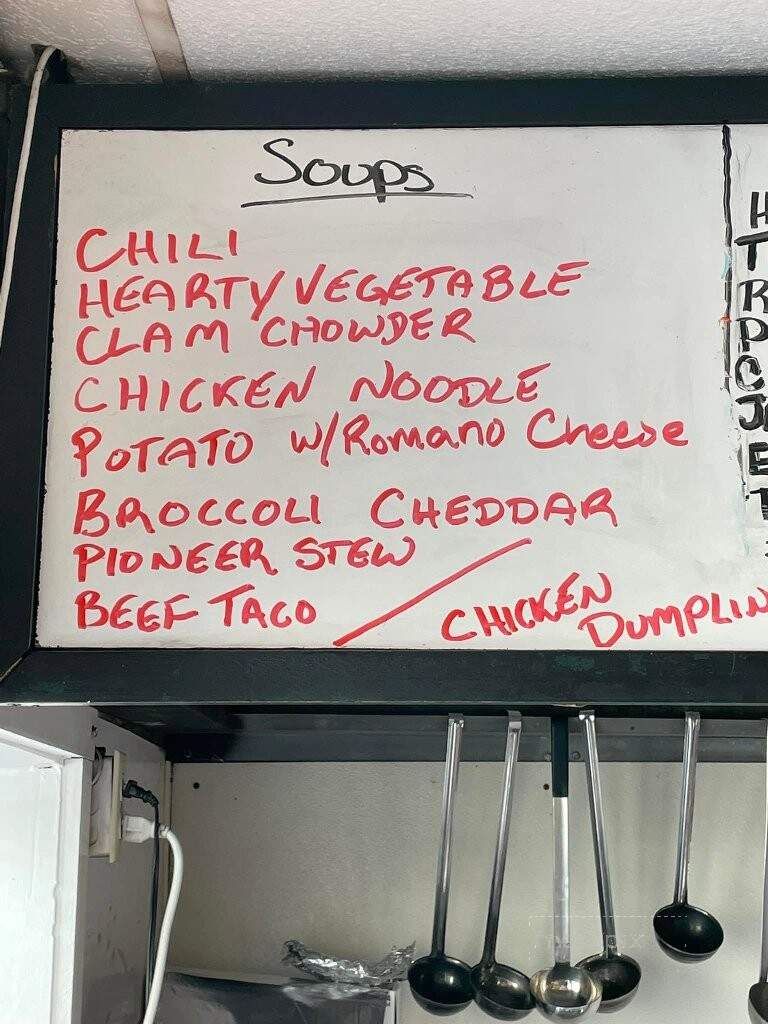 Soups
CHILI
HEARTY VEGETABLE
CLAM CHOWDER
CHICKEN NOODLE
POTATO W/Romano Cheese
BROCCOLI CHEDDAR
PIONEER STEW
BEEF TACO / CHICKEN
DUMPLIN